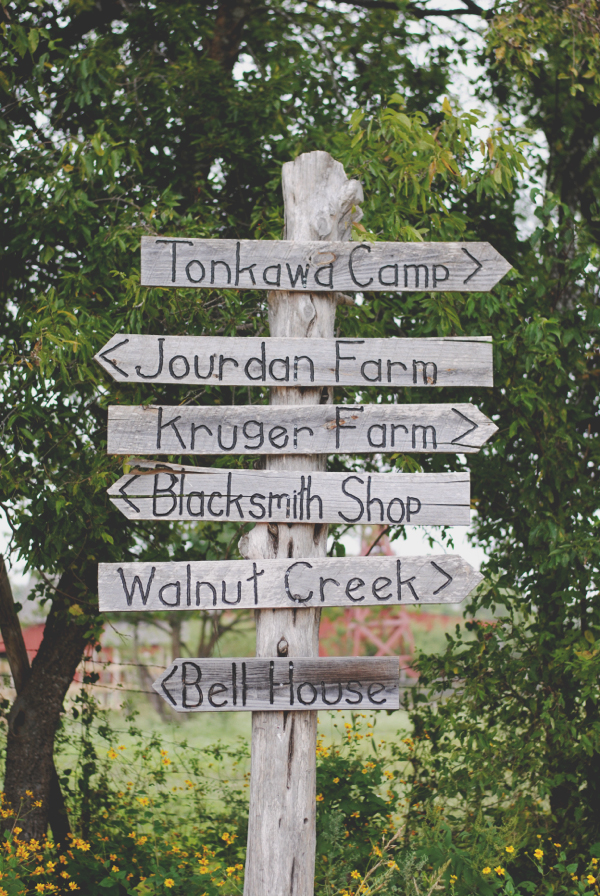 Tonkawa Camp >
< Jourdan Farm
Kruger Farm >
< Blacksmith Shop
Walnut Creek >
< Bell House